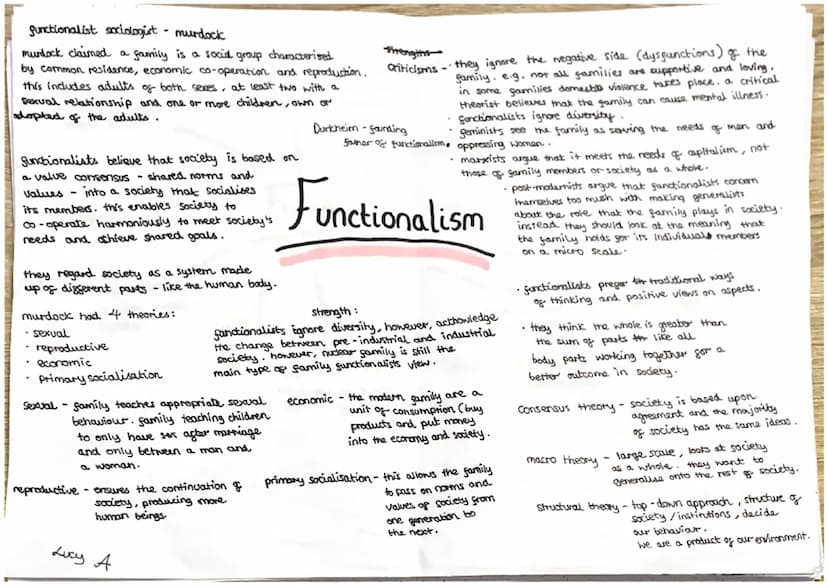 functionalist sociologist - murdock
murdock claimed a family is a social group characterised
by common residence, economic co-operation and reproduction.
this includes adults of both sexes, at least two with a
sexual relationship and one or more children, own or
adopted of the adults.
Durkheim - founding
father of functionalism
functionalists believe that society is based on
a value consensus - shared norms and
values - into a society that socialises
its members. this enables society to
co-operate harmoniously to meet society's
needs and achieve shared goals.
they regard society as a system made
up of different parts - like the human body.
murdock had 4 theories:
· sexual
· reproductive
· economic
· primary socialisation
Functionalism
strengths
criticisms - · they ignore the negative side (dysfunctions) of the
family. e.g. not all families are supportive and loving,
in some families domestic violence takes place. a critical
theorist believes that the family can cause mental illness.
· functionalists ignore diversity.
· feminists see the family as serving the needs of men and
oppressing women.
· marxists argue that it meets the needs of capitalism, not
those of family members or society as a whole.
· post-modernists argue that functionalists concern
themselves too much with making generalists
about the role that the family plays in society.
instead they should look at the meaning that
the family holds for its individuals members
on a micro scale.
strength:
functionalists ignore diversity, however, acknowledge
the change between pre-industrial and industrial
society. however, nuclear family is still the
main type of family functionalists view.
· functionalists prefer traditional ways
of thinking and positive views on aspects.
· they think the whole is greater than
the sum of parts like all
body parts working together for a
better outcome in society.
sexual - family teaches appropriate sexual
behaviour. family teaching children
to only have sex after marriage
and only between a man and
a woman.
economic - the modern family are a
unit of consumption (buy
products and put money
into the economy and society.
reproductive - ensures the continuation of
society, producing more
human beings
primary socialisation - this allows the family
to pass on norms and
values of society from
one generation to
the next.
consensus theory - society is based upon
agreement and the majority
of society has the same ideas.
macro theory - large scale, looks at society
as a whole. they want to
generalise onto the rest of society.
structural theory - top-down approach, structure of
society/institutions, decide
our behaviour.
we are a product of our environment.
Lucy A